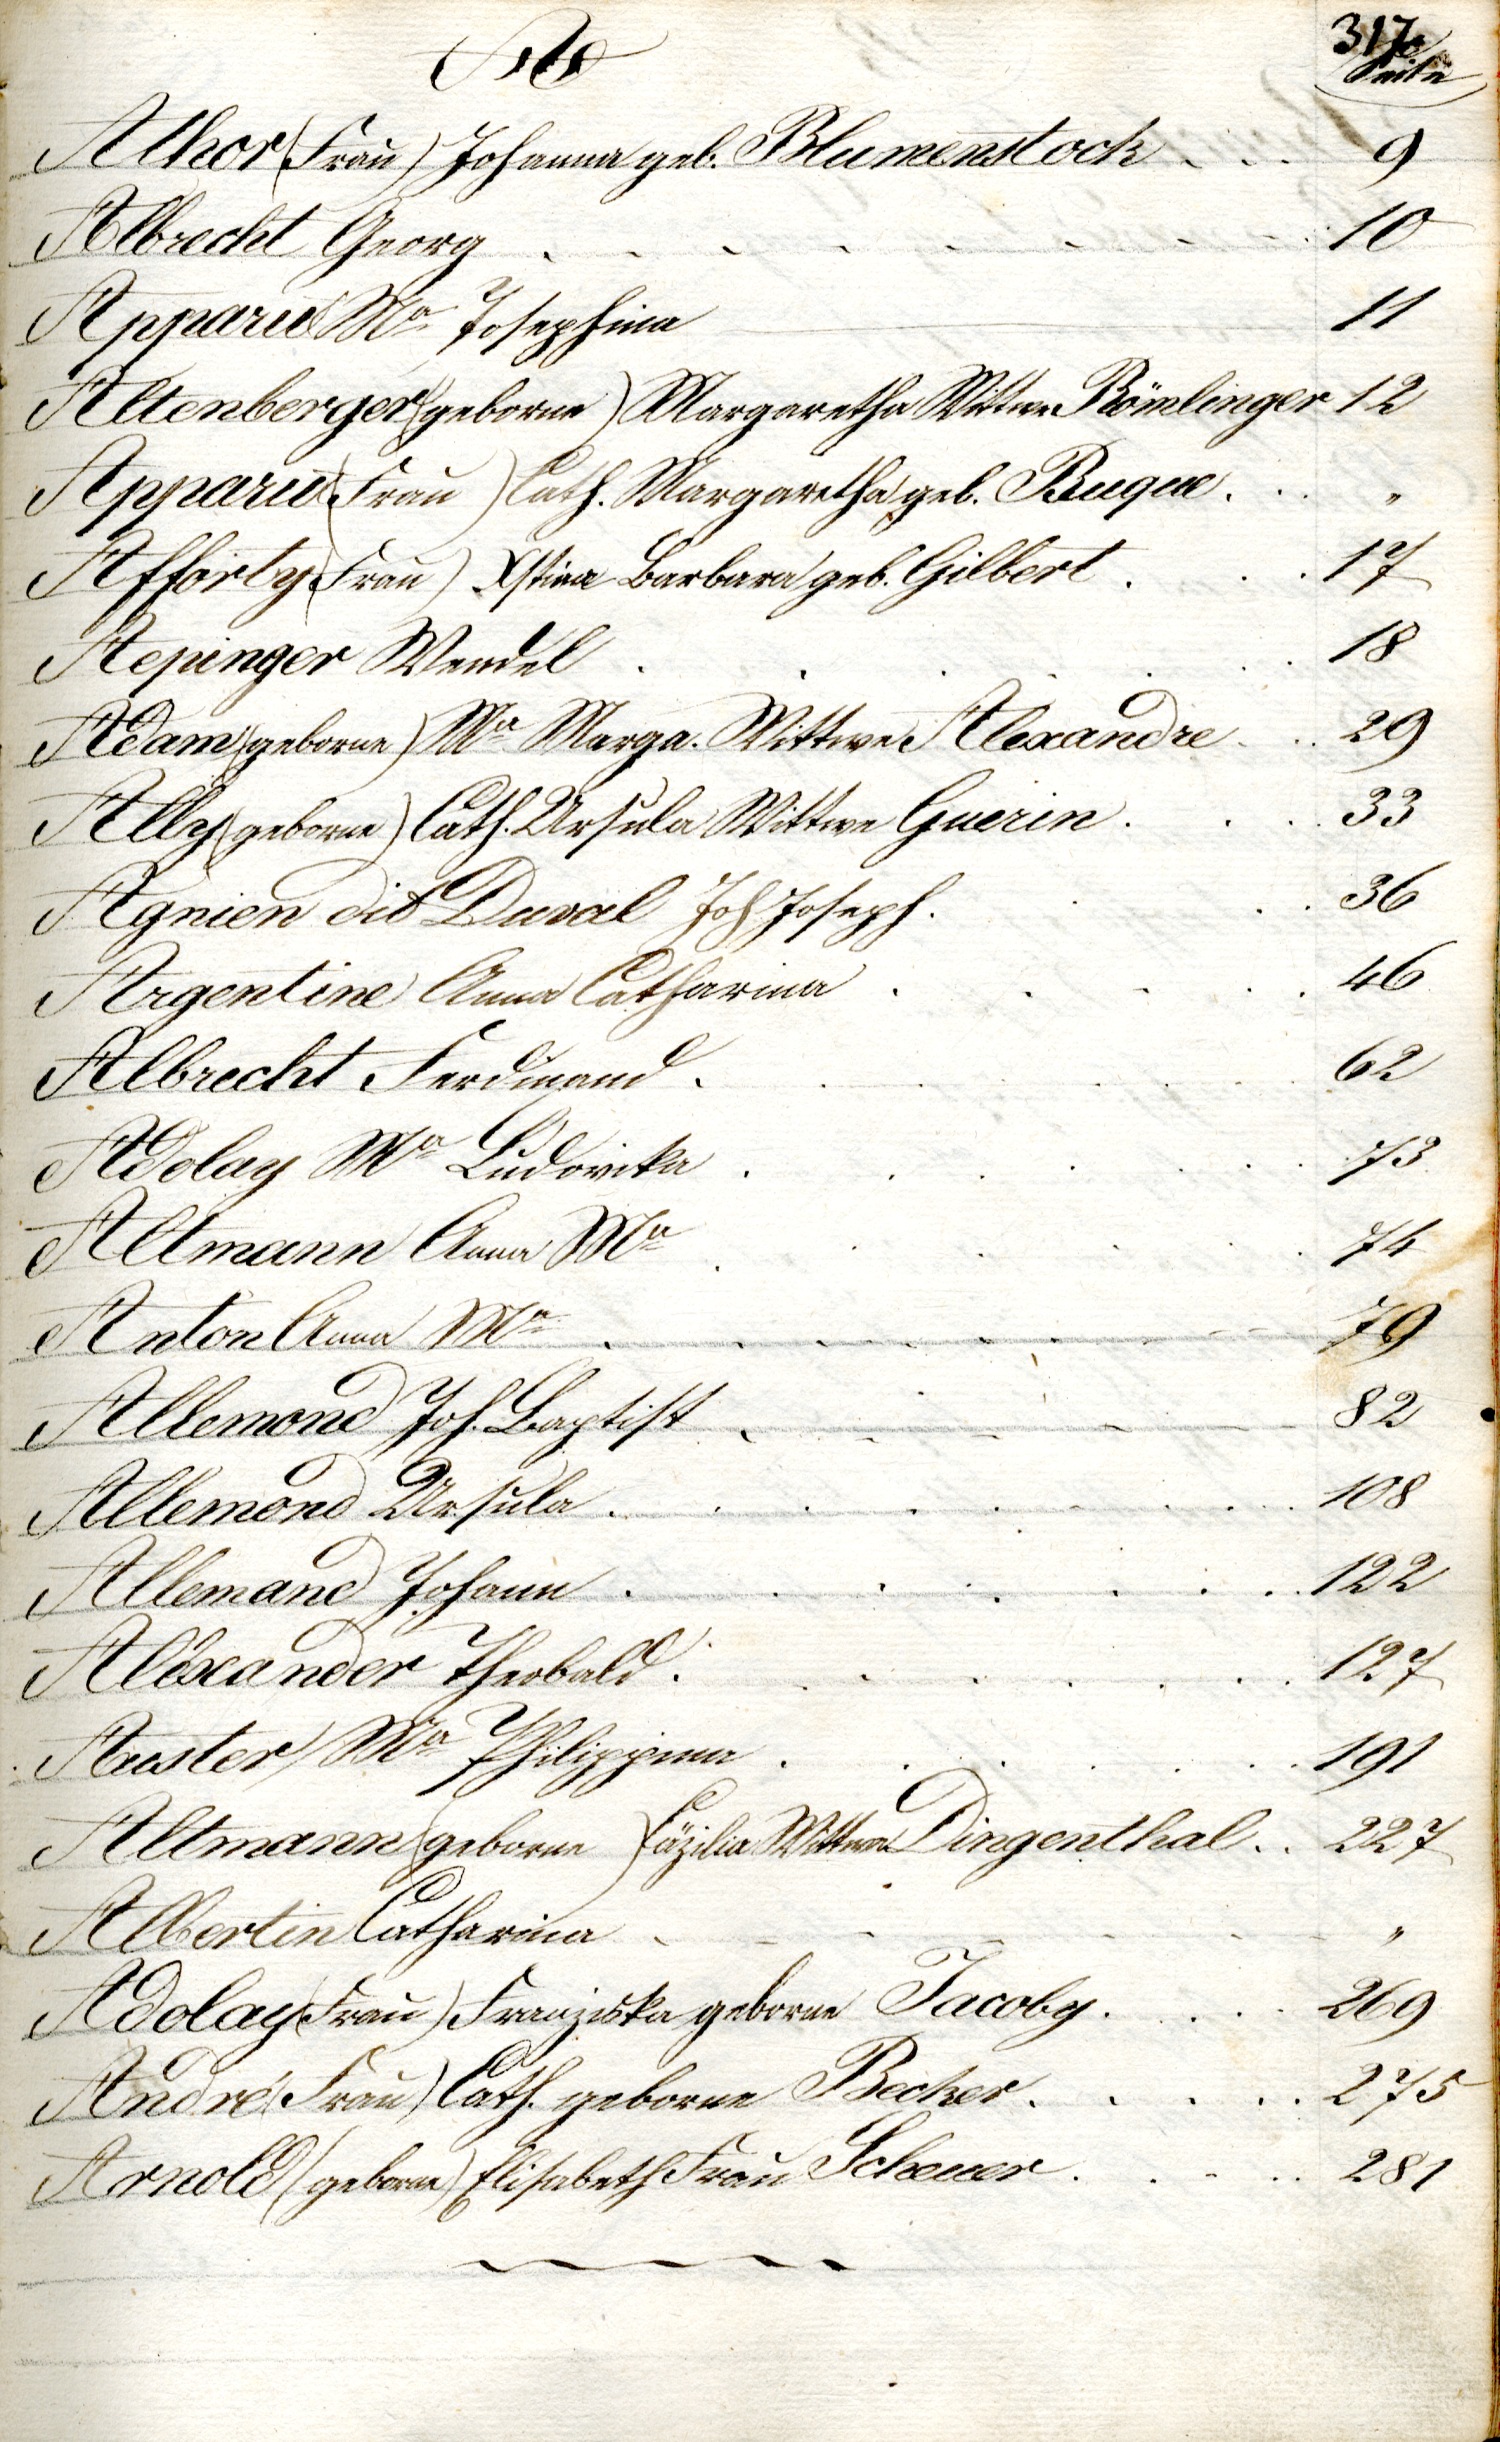 A
317.
Seite
Alhor (Frau) Johanna geb. Blumenstock . . . 9
Albrecht Georg . . . . . . . . 10
Apparu Ma Josephina 11
Altenberger (geborne) Margaretha Wittwe Römlinger 12
Apparu (Frau) Cath. Margaretha geb. Buque . . . "
Afforty (Frau) Xstina Barbara geb. Gilbert . . . 17
Aepinger Wendel . . . . . . 18
Adam (geborne) Ma Marga. Wittwe Alexandre . . . 29
Ally (geborne) Cath. Ursula Wittwe Guerin . . . . 33
Agnien dit Duval Joh Joseph . . . . 36
Argentine Anna Catharina . . . . . . 46
Albrecht Ferdinand . . . . . . . 62
Adolay Ma Ludovika . . . . . . . 73
Altmann Anna Ma . . . . . . 74
Anton Anna Ma . . . . . . . 79
Allemond Joh. Baptist . . . . . . 82
Allemond Ursula . . . . . . . . 108
Allemand Johann . . . . . . . . 122
Alexander Theobald . . . . . . . 127
Auster Ma Philippina . . . . . . . 191
Altmann (geborne) Cäzilia Wittwe Dingenthal . . 227
Albertin Catharina . . . . . . . "
Adolay (Frau) Franziska geborne Jacoby . . . . 269
André (Frau) Cath. geborne Becker . . . . . 275
Arnold (geborne) Elisabeth Frau Scheuer . . . . . 281